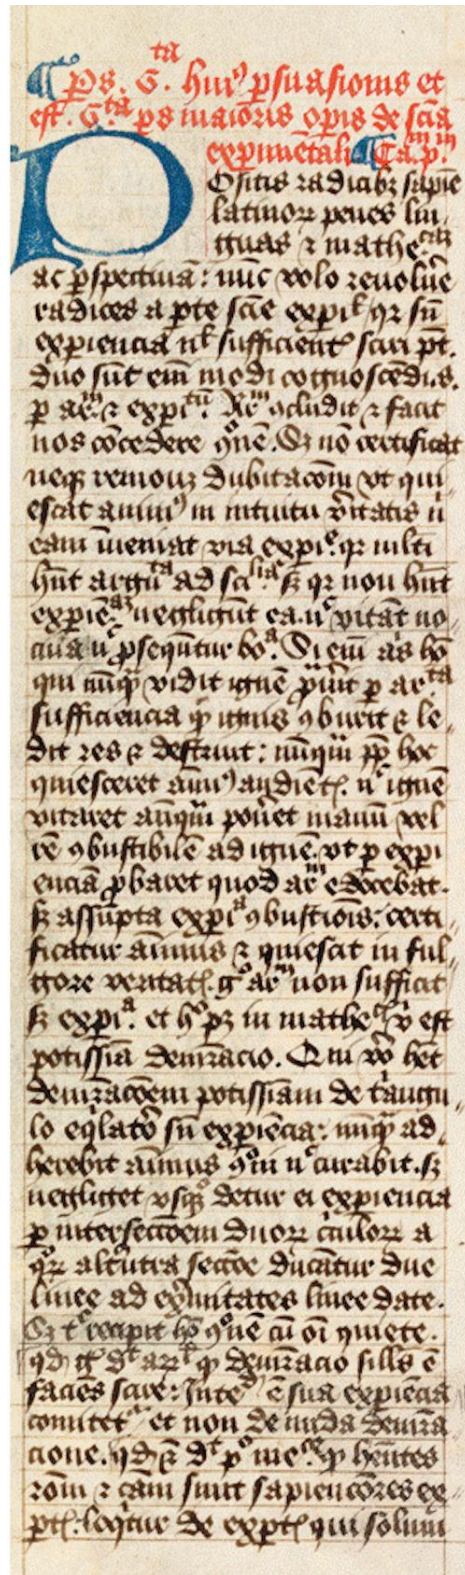 ¶ ꝑs. 6.ta huiꝰ ꝑsuasionis et
est. 6.ta ꝑs maioris oꝑis de scīa
expimētali ¶ Ca. pm. in
Positis radicibꝫ sapiē
latinoꝝ penes lin
guas ⁊ mathe.cam
ac ꝑspectiuā: nūc volo reuoluē
radices a ꝑte scīe expil̄ qꝛ sn̄
exꝑiencia nl̄ sufficientꝰ sciri pt̄.
duo sūt em̄ modi cognoscēdi .s.
ꝑ ar.m ⁊ expi.tū. Ar.m ꝯcludit ⁊ facit
nos cōcedere qōnē. Sꝫ nō certificat
neqꝫ remouꝫ dubitacōm vt qui
escat animꝰ in intuitu v̄itatis ni
eam īueniat via expi.e qꝛ mlti
hn̄t argu.ta ad sci.lia sꝫ qꝛ non hn̄t
expiē.am negligūt ea. nc vitāt no
ciua nc ꝓsequntur bo.a. Si em̄ aīs hō
qui nūqā vidit ignē ꝓbauit ꝑ ar.ta
sufficiencia qꝙ ignis ꝯburit ⁊ le
dit res ⁊ destruit: nūquā ꝓp hoc
quiesceret animꝰ audiētꝭ. nc ignē
vitaret anquā ponet manū vel
rē ꝯbustibilē ad ignē. vt ꝑ expi
enciā ꝓbaret quod ar.m edocebat.
sꝫ assūpta expi.a ꝯbustiōis: certi
ficatur animus ⁊ quiescit in ful
gore veritatꝭ. go ar.m non sufficit
sꝫ expi.a. et hc pꝫ in mathe.cis vbi est
potissīa demr̄acio. Qui vo hēt
demr̄acōem potissīam de t'angu
lo eq̄lato sn̄ expiēcia: nūqā ad
herebit animus qōni nc curabit. sꝫ
negliget vsqꝫ detur ei experiencia
ꝑ intersecciōem duoꝝ ciculoꝝ a
qoꝝ altūtra seccōe ducātur due
linee ad extmitates linee date.
Sꝫ tc recipit hō qōnē cū oī quiete.
qd g̊ dt ar.l qꝙ demr̄acio sills ē
faciēs scire: Inte.dr ē si sua expiēcia
comitet.r et non de nuda demr̄a
cione. qd ⁊ dt po me.ce qꝙ hēntes
rōm ⁊ cām sunt sapienciōres ex
ꝑtꝭ. loqtur de exꝑtꝭ qui solum